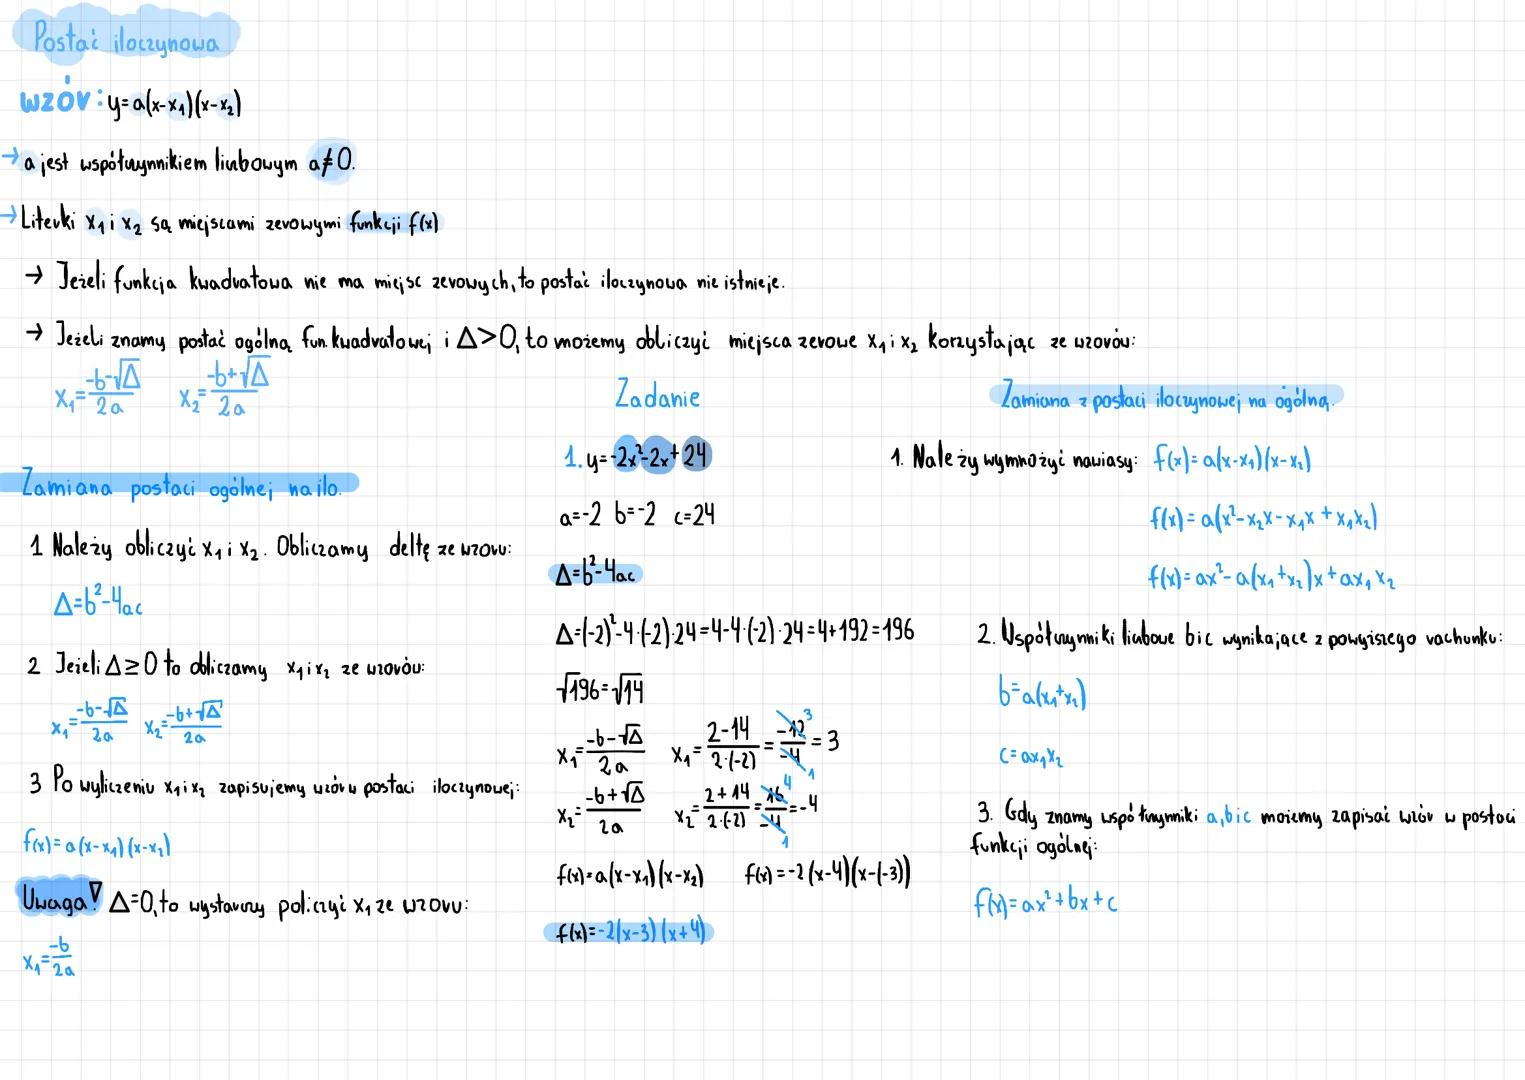 Postać iloczynowa
wzór: y=a(x-x₁)(x-x₂)
→ a jest współczynnikiem liczbowym a≠0.
→ Literki x₁ i x₂ są miejscami zerowymi funkcji f(x)
→ Jeżeli funkcja kwadratowa nie ma miejsc zerowych, to postać iloczynowa nie istnieje.
→ Jeżeli znamy postać ogólną fun. kwadratowej i Δ>0, to możemy obliczyć miejsca zerowe x₁ i x₂ korzystając ze wzorów:
x₁=(-b-√Δ)/2a x₂=(-b+√Δ)/2a
Zamiana postaci ogólnej na ilo.
1 Należy obliczyć x₁ i x₂. Obliczamy deltę ze wzoru:
Δ=b²-4ac
2 Jeżeli Δ≥0 to obliczamy x₁ i x₂ ze wzorów:
x₁=(-b-√Δ)/2a x₂=(-b+√Δ)/2a
3 Po wyliczeniu x₁ i x₂ zapisujemy wzór w postaci iloczynowej:
f(x)=a(x-x₁)(x-x₂)
Uwaga! Δ=0, to wystarczy policzyć x₁ ze wzoru:
x₁=-b/2a
Zadanie
1. y=-2x²-2x+24
a=-2 b=-2 c=24
Δ=b²-4ac
Δ=(-2)²-4·(-2)·24=4-4·(-2)·24=4+192=196
√196=√14
x₁=(-b-√Δ)/2a x₁=(2-14)/(2·(-2))=-12/-4=3 3 1
x₂=(-b+√Δ)/2a x₂=(2+14)/(2·(-2))=16/-4=-4 4 1
f(x)=a(x-x₁)(x-x₂) f(x)=-2(x-4)(x-(-3))
f(x)=-2(x-3)(x+4)
Zamiana z postaci iloczynowej na ogólną.
1. Należy wymnożyć nawiasy: f(x)=a(x-x₁)(x-x₂)
f(x)=a(x²-x₂x-x₁x+x₁x₂)
f(x)=ax²-a(x₁+x₂)x+ax₁x₂
2. Współczynniki liczbowe b i c wynikające z powyższego rachunku:
b=a(x₁+x₂)
c=ax₁x₂
3. Gdy znamy współczynniki a,b i c możemy zapisać wzór w postaci
funkcji ogólnej:
f(x)=ax²+bx+c